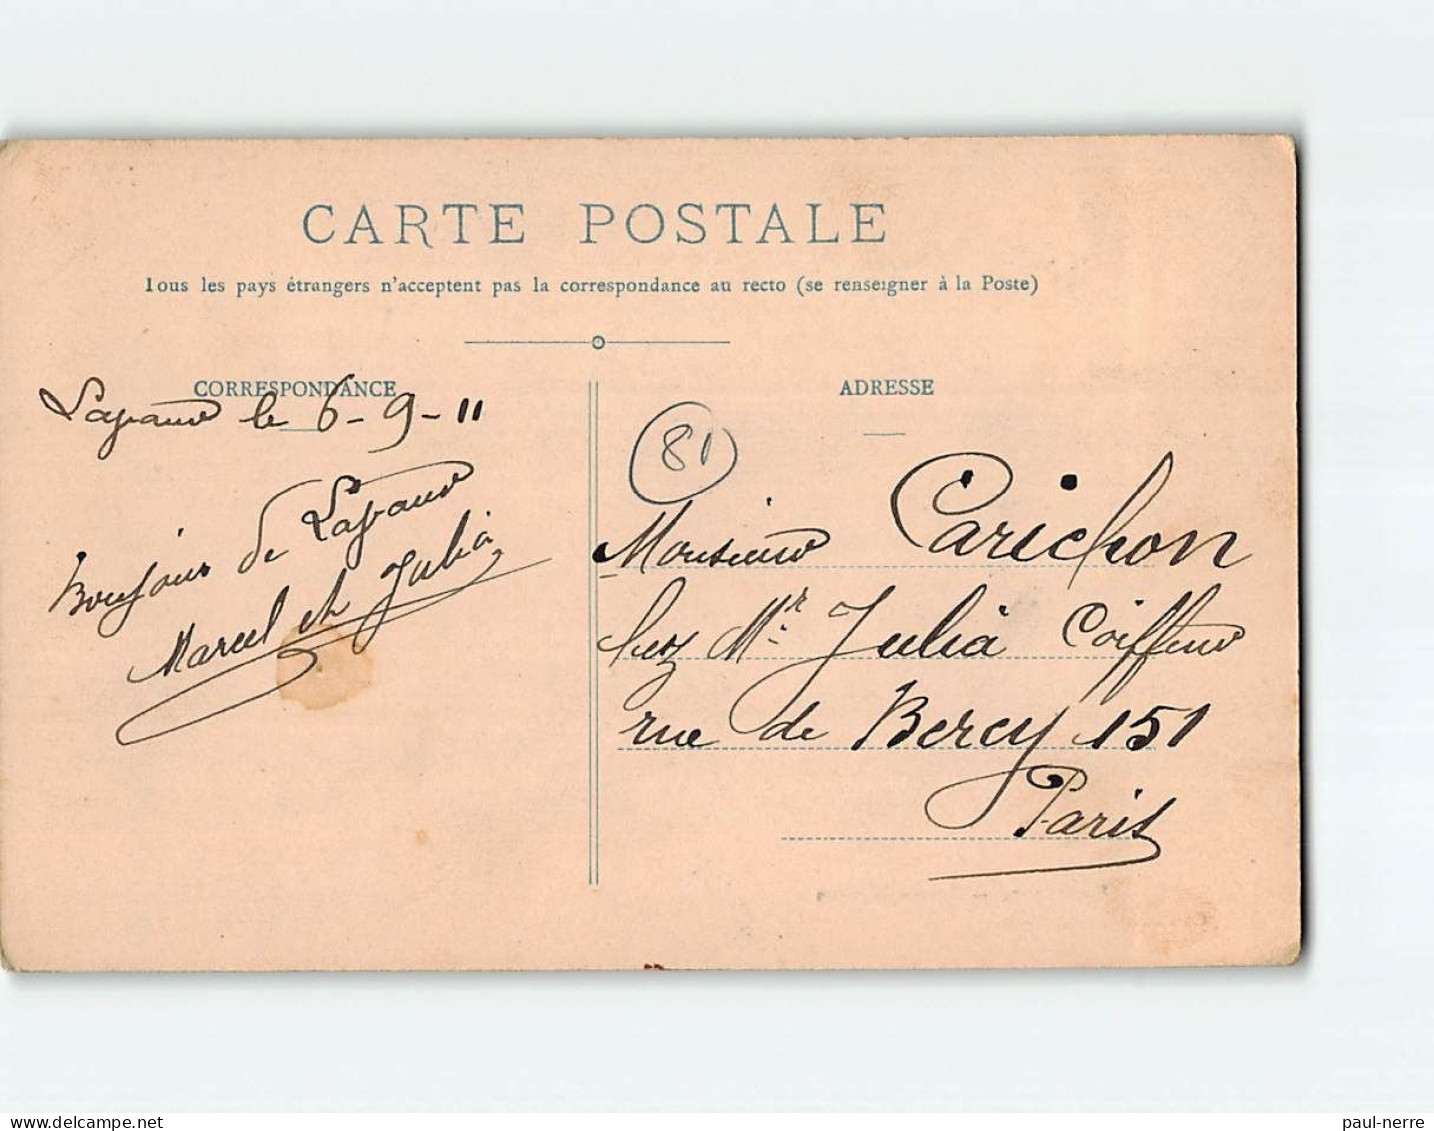 CARTE POSTALE
Tous les pays étrangers n'acceptent pas la correspondance au recto (se renseigner à la Poste)
CORRESPONDANCE
le 6-9-11
Bonjour de
Marcel et Julia
ADRESSE
81
Monsieur Carichon
chez Mr Julia Coiffeur
rue de Bercy 151
Paris
paul-nerre